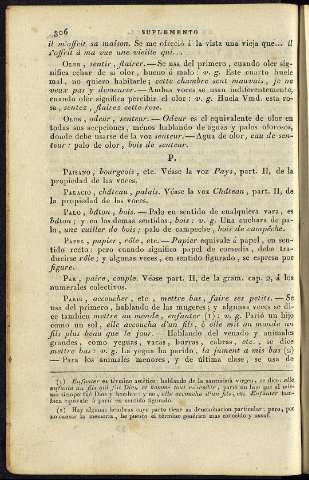 306 SUPLEMENTO
il m'offrit sa maison. Se me ofreció á la vista una vieja que... il
s'offrit á ma vue une vieille qui...
OLER, sentir, flairer. — Se usa del primero, cuando oler sig-
nifica echar de sí olor, bueno ó malo: v. g. Este cuarto huele
mal, no quiero habitarle; cette chambre sent mauvais, je ne
veux pas y demeurer. — Ambas voces se usan indiferentemente,
cuando oler significa percibir el olor: v. g. Huela Vmd. esta ro-
sa, sentez, flairez cette rose.
OLOR, odeur, senteur. — Odeur es el equivalente de olor en
todas sus acepciones, ménos hablando de aguas y palos olorosos,
donde debe usarse de la voz senteur. — Agua de olor, eau de sen-
teur: palo de olor, bois de senteur.
P.
PAISANO, bourgeois, etc. Véase la voz Pays, part. II, de la
propiedad de las voces.
PALACIO, château, palais. Véase la voz Château, part. II, de
la propiedad de las voces.
PALO, bâton, bois. — Palo en sentido de cualquiera vara, es
bâton; y en los demas sentidos, bois: v. g. Una cuchara de pa-
lo, une cuiller de bois; palo de campeche, bois de campêche.
PAPEL, papier, rôle, etc. — Papier equivale á papel, en sen-
tido recto: pero cuando significa papel de comedia, debe tra-
ducirse rôle; y algunas veces, en sentido figurado, se espresa por
figure.
PAR, paire, couple. Véase part. II, de la gram. cap. 2, á los
numerales colectivos.
PARIR, accoucher, etc., mettre bas, faire ses petits. — Se
usa del primero, hablando de las mugeres; y algunas veces se di-
ce tambien mettre au monde, enfanter (1): v. g. Parió un hijo
como un sol, elle accoucha d'un fils, ó elle mit au monde un
fils plus beau que le jour. — Hablando del venado y animales
grandes, como yeguas, vacas, burras, cabras, etc., se dice
mettre bas: v. g. La yegua ha perido, la jument a mis bas (2)
— Para los animales menores, y de última clase, se usa de
(1) Enfanter es término ascético: hablando de la santísima vírgen, se dice: elle
enfanta un fils qui fut Dieu, et homme tout ensemble; parió un hijo que al mis-
mo tiempo fué Dios y hombre; y no, elle accoucha d'un fils, etc. Enfanter tam-
bien equivale á parir en sentido figurado.
(2) Hay algunas hembras cuyo parto tiene su denominacion particular; pero, por
no cansar la memoria, he puesto el término genérico mas conocido y usual.